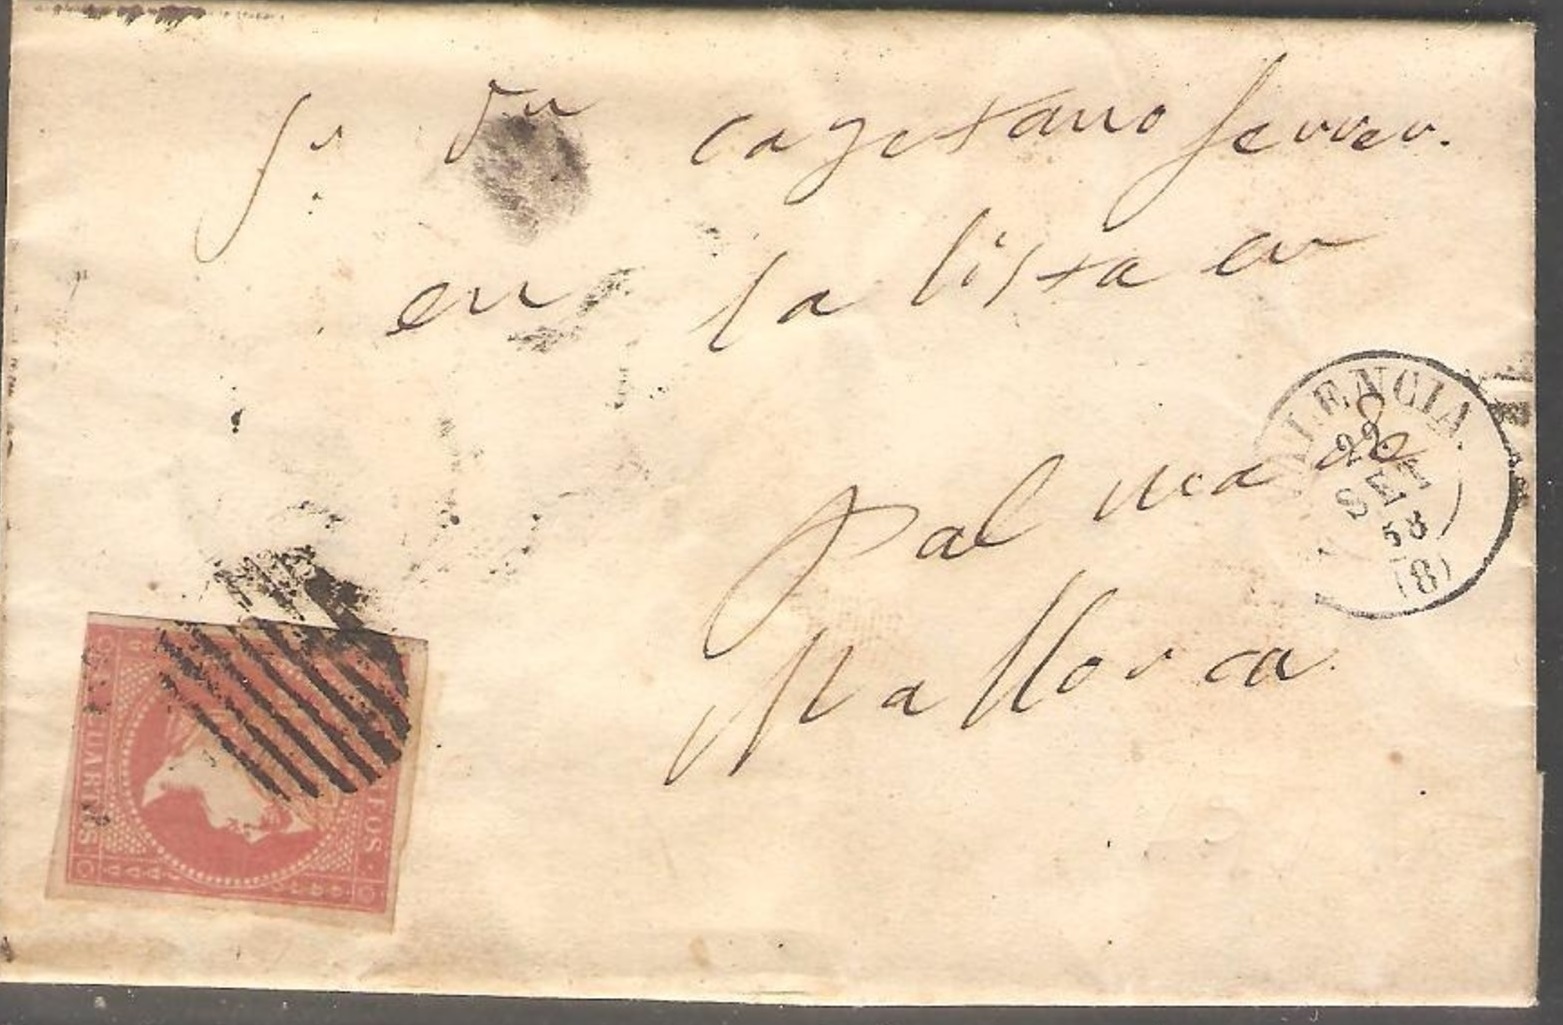 Sr. Dn Cayetano Ferrer.
en la lista en
Palma de
Mallorca.
VALENCIA.
22
SET
58
(8)
CUARTOS
FOS.